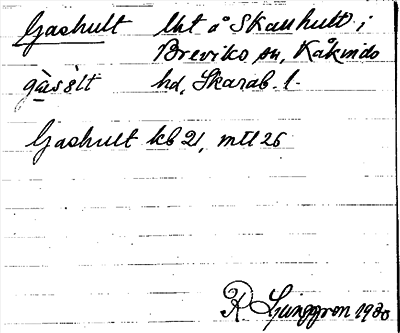 Gashult lht å Skauhult i
Breviks sn, Kåkinds
gàsǝlt hd, Skarab. l.
Gashult kb 21, mtl 26
R. Ljunggren 1930